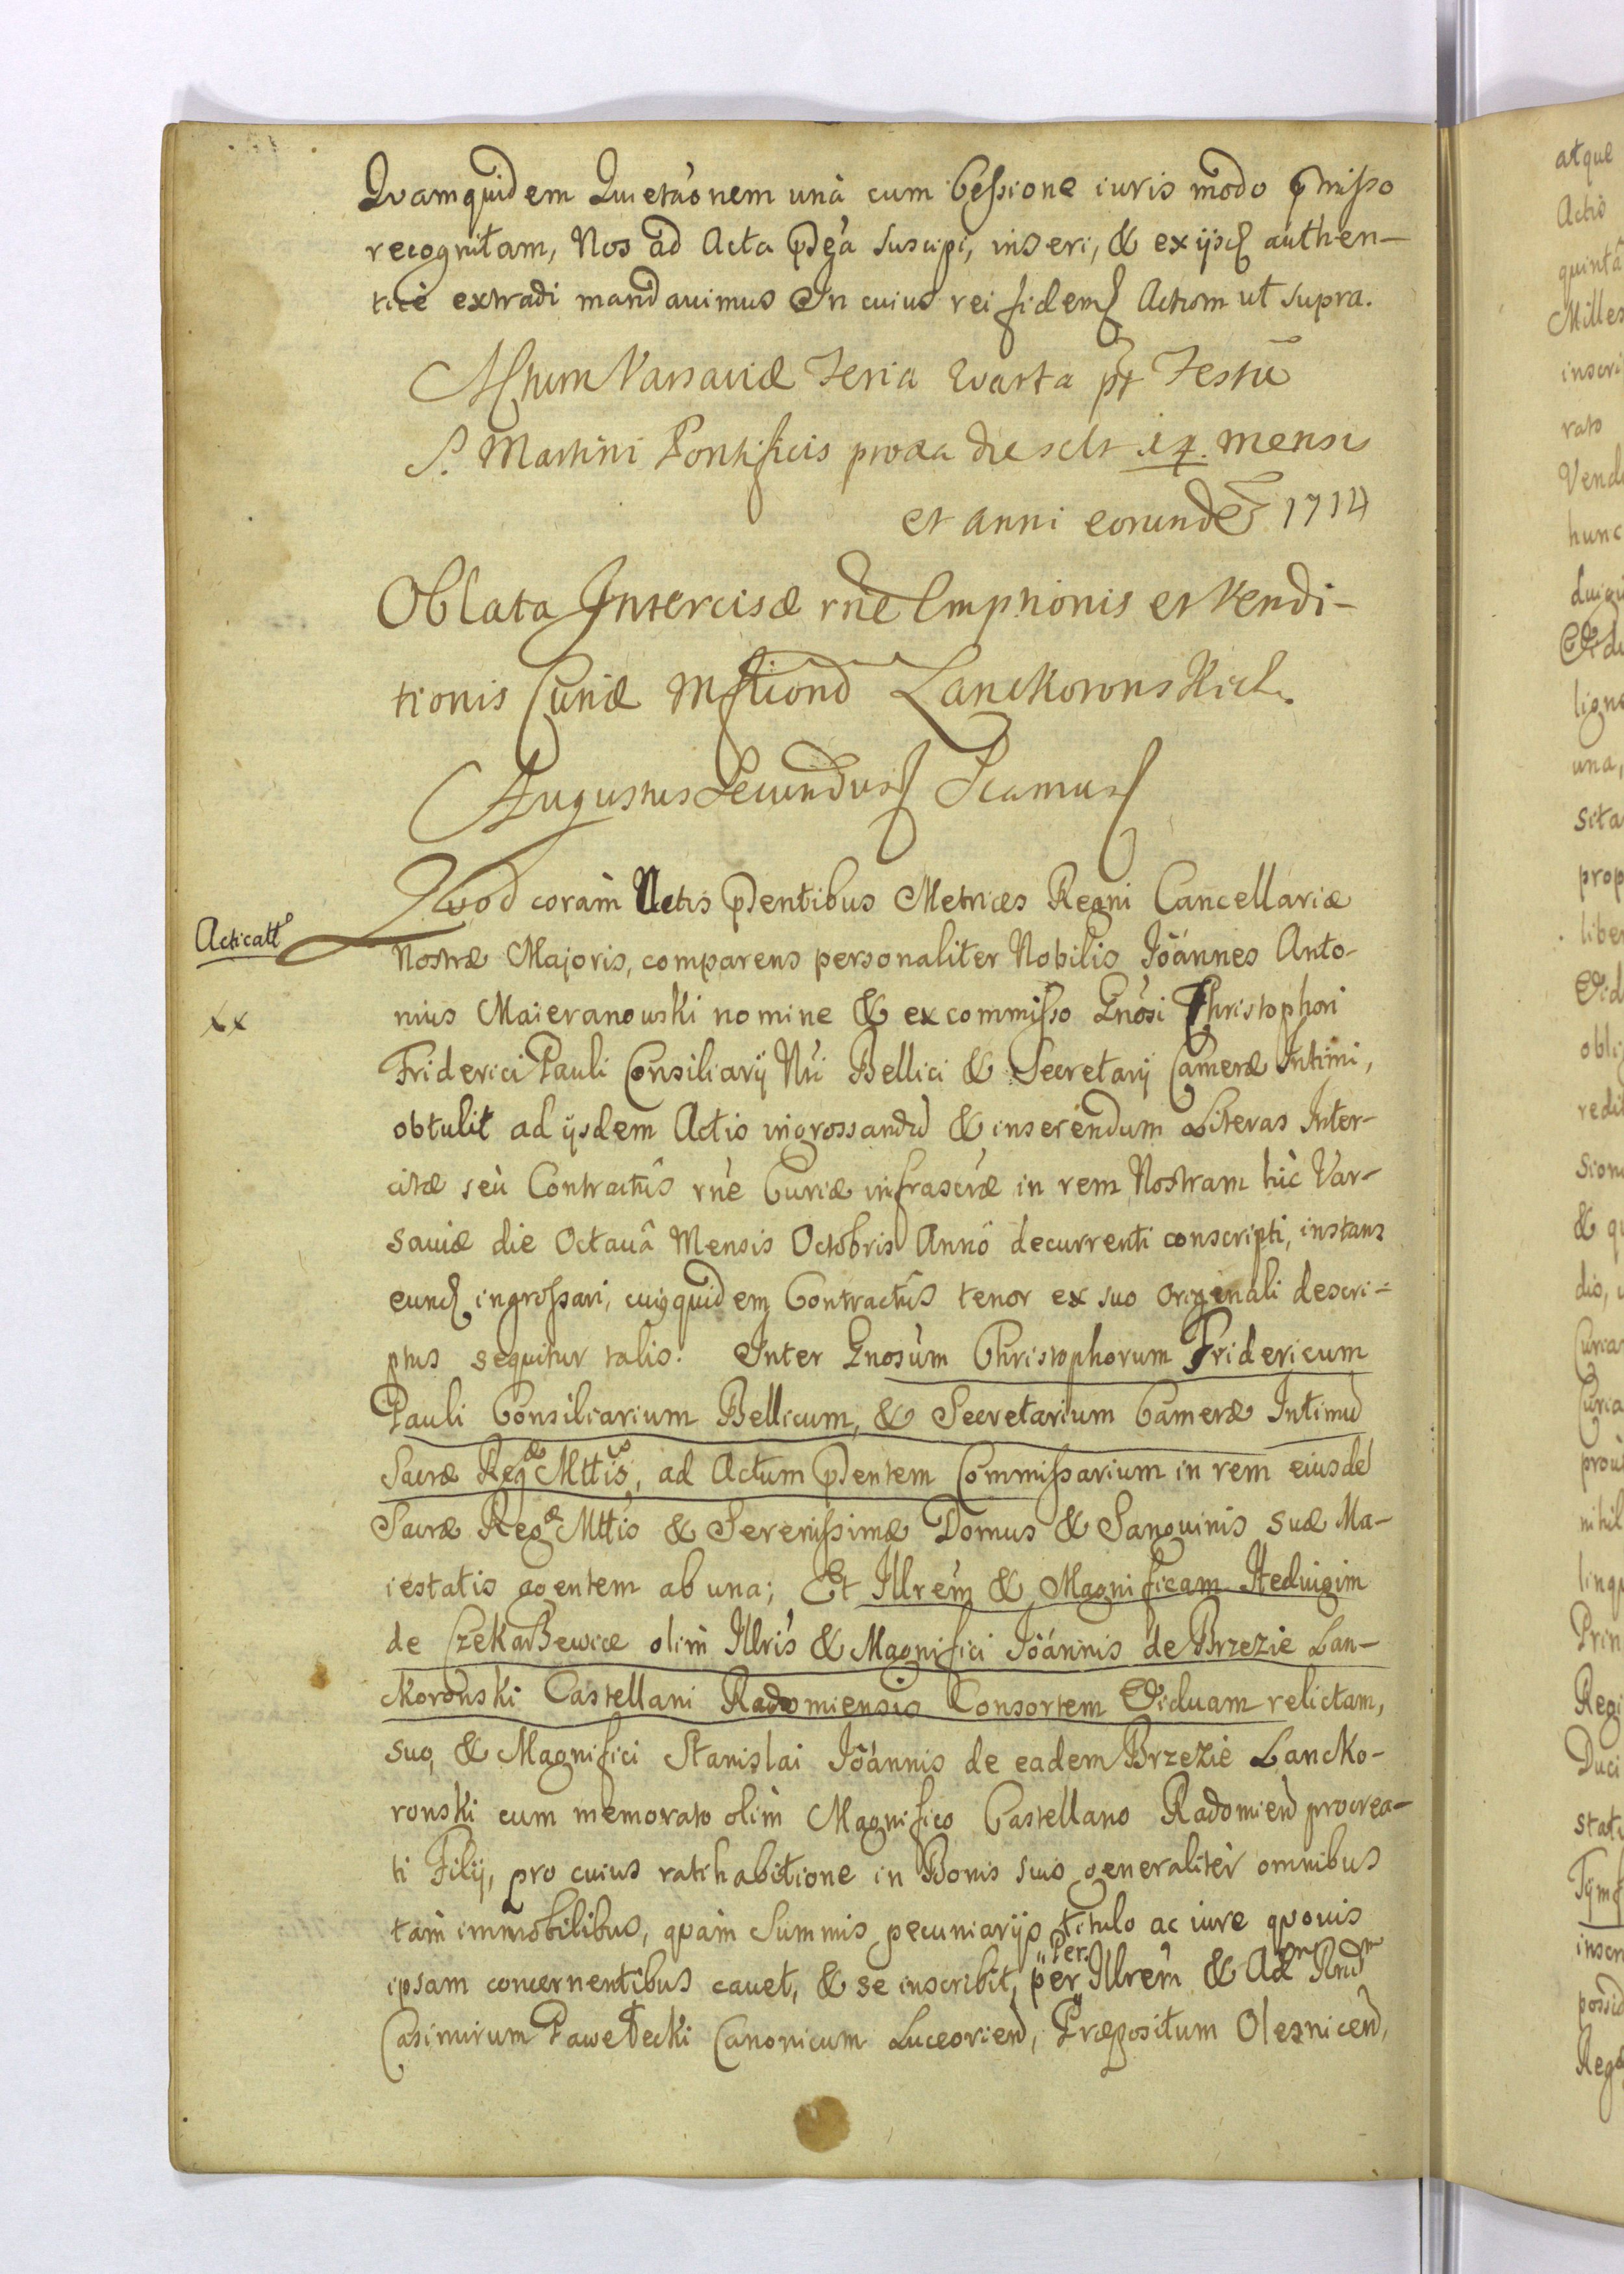 Quamquidem Quietaõnem unà cum Cessione iuris modo pmisso
recognitam, Nos ad Acta pñtia suscipi, inseri, & ex ijsd authen-
ticè extradi mandavimus In cuius rei fidem Actum ut supra.
Actum Varsaviæ Feria Quarta pt Festũ
S. Martini Pontificis proxa die sclt 14. mensis
et anni eorundẽ 1714
Oblata Intercisæ rñe Emptionis et Vendi-
tionis Curiæ Mficord Lanckoronskich.
Augustus Secundus Scamus
Quod coràm Actis pñentibus Metrices Regni Cancellariæ
Acticatt
Nostræ Majoris, comparens personaliter Nobilis Joánnes Anto-
nius Maieranowski nomine & ex commisso Gnõsi Christophori
xx
Friderici Pauli Consiliarij Nri Bellici & Secretarij Cameræ Intimi,
obtulit ad ijsdem Actis ingrossandũ & inseréndum Literas Inter-
cisæ seù Contractûs rñe Curiæ infrascræ in rem Nostram hìc Var-
saviæ die Octauâ Mensis Octobris Annô decurrenti conscripti, instans
eund ingrossari, cuiq quidem Contractûs tenor ex suo originali descri-
ptus sequitur talis. Inter Gnosùm Christophorum Fridericum
Pauli Consiliarium Bellicum, & Secretarium Cameræ Intimũ
Sacræ Regæ Mttis, ad Actum pñentem Commissarium in rem eiusdẽ
Sacræ Regæ Mttis & Serenissimæ Domus & Sanguinis suæ Ma-
iestatis agentem ab una; Et Illrem & Magnificam Heduigim
de Czekarzewice olim Illris & Magnifici Joánnis de Brzezie Lan-
ckoronski Castellani Radomiensis Consortem Viduam relictam,
suo, & Magnifici Stanislai Joánnis de eadem Brzezie Lancko-
ronski cum memorato olim Magnifico Castellano Radomien procrea-
ti Filij, pro cuius ratihabitione in Bonis suis generalitèr omnibus
tàm immobilibus, quàm Summis pecuniarijs titulo ac iure quovis
ipsam concernentibus cavet, & se inscribit, per Illrem & Adm Rndm
Per.
Casimirum Pawełecki Canonicum Luceorien, Præpositum Olesnicen,